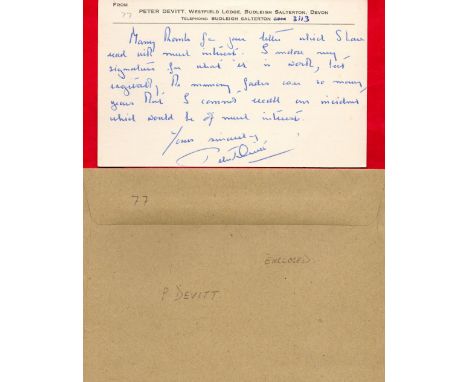 FROM
77
PETER DEVITT, WESTFIELD LODGE, BUDLEIGH SALTERTON, DEVON
TELEPHONE: BUDLEIGH SALTERTON 2113
Many thanks for your letter which I have
read with much interest. I enclose my
signature for what it is worth, but
regretfully the memory fades over so many
years that I cannot recall any incident
which would be of much interest.
Yours sincerely
Peter Devitt
77
ENCLOSED.
P. DEVITT